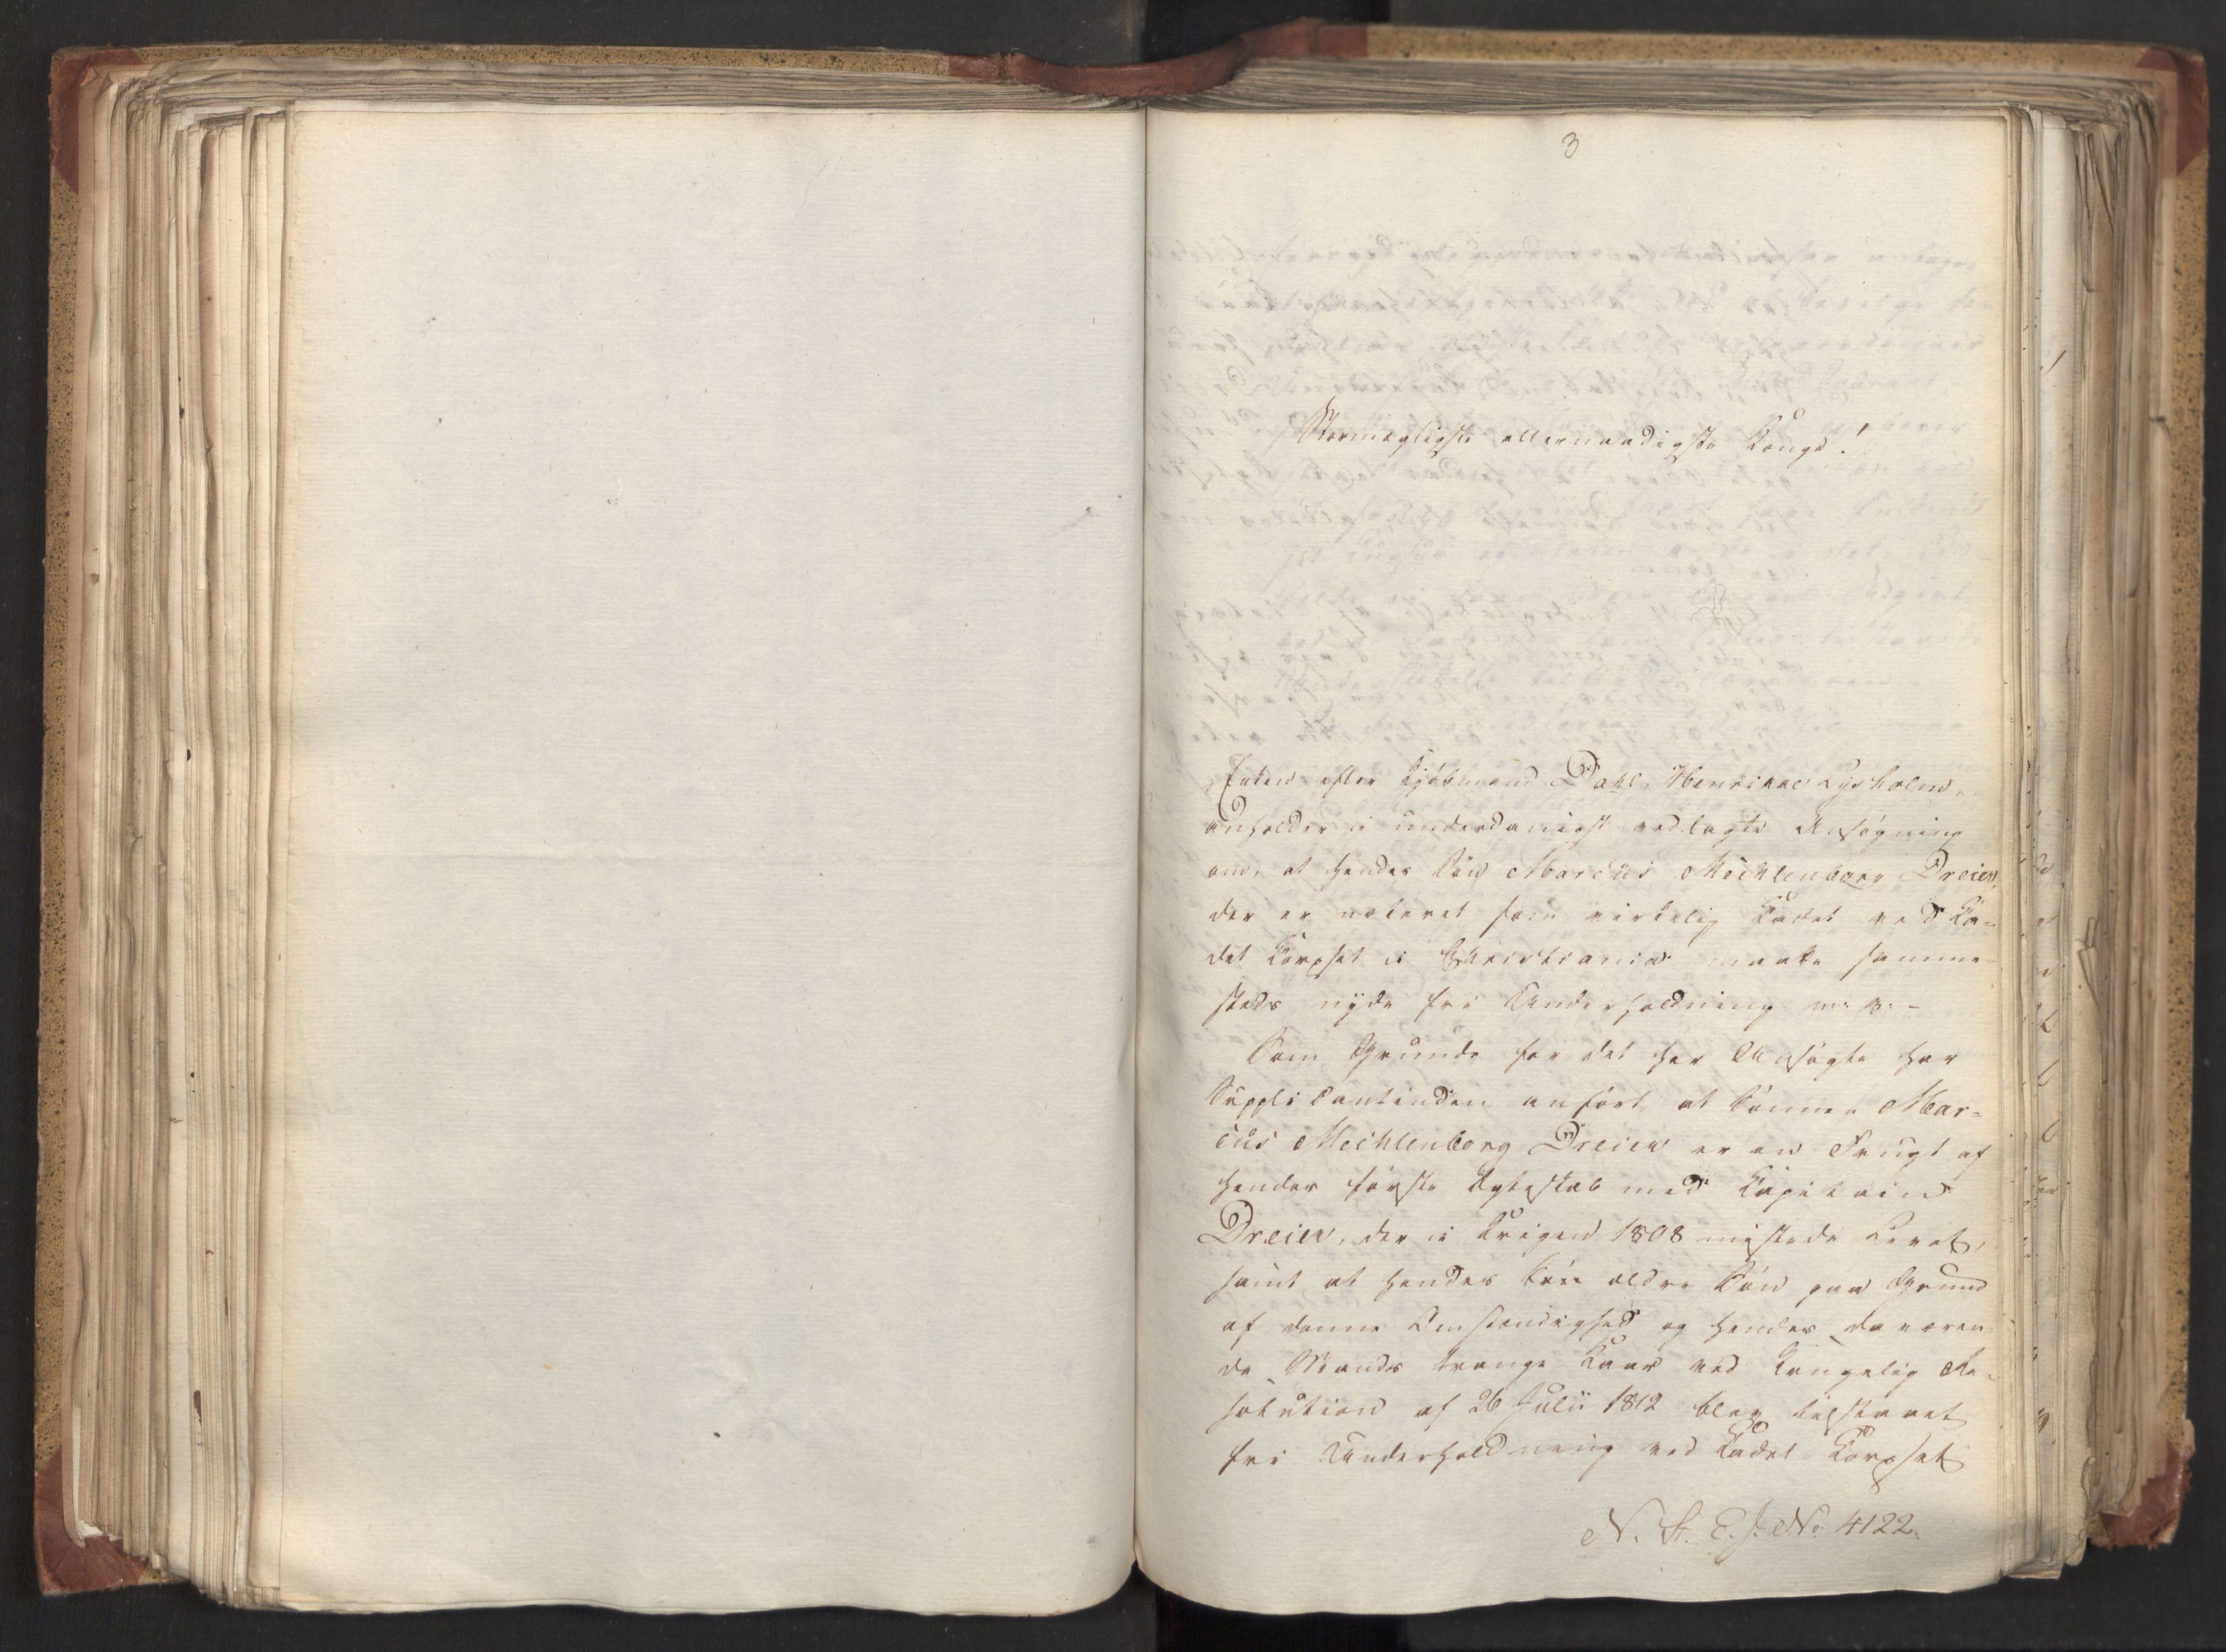 3
Stormægtigste allernaadigste Konge!
Enken efter Kjøbmand Dahl, Henrikae Lysholm,
anholder i underdanigst vedlagte Ansøgning
om, at hendes Søn Marcus Mechlenborg Dreier,
der er noteret som virkelig Kadet ved Ka-
det Korpset i Christiania maatte samme-
steds nyde fri Underholdning m: v: -
Som Grunde for det her Ansøgte har
Supplicantinden anført, at Sønnen Mar-
cus Mechlenborg Dreier er en Frugt af
hendes første Egteskab med Kapitain
Dreier, der i Krigen 1808 mistede Livet,
samt at hendes ældre Søn paa Grund
af denne Omstændighed og hendes daværen-
de Mands trange Kaar ved Kongelig Re-
solution af 26 Julii 1812 blev tilstaaet
fri Underholdning ved Kadet Korpset
N. St. E. J. No 4122.